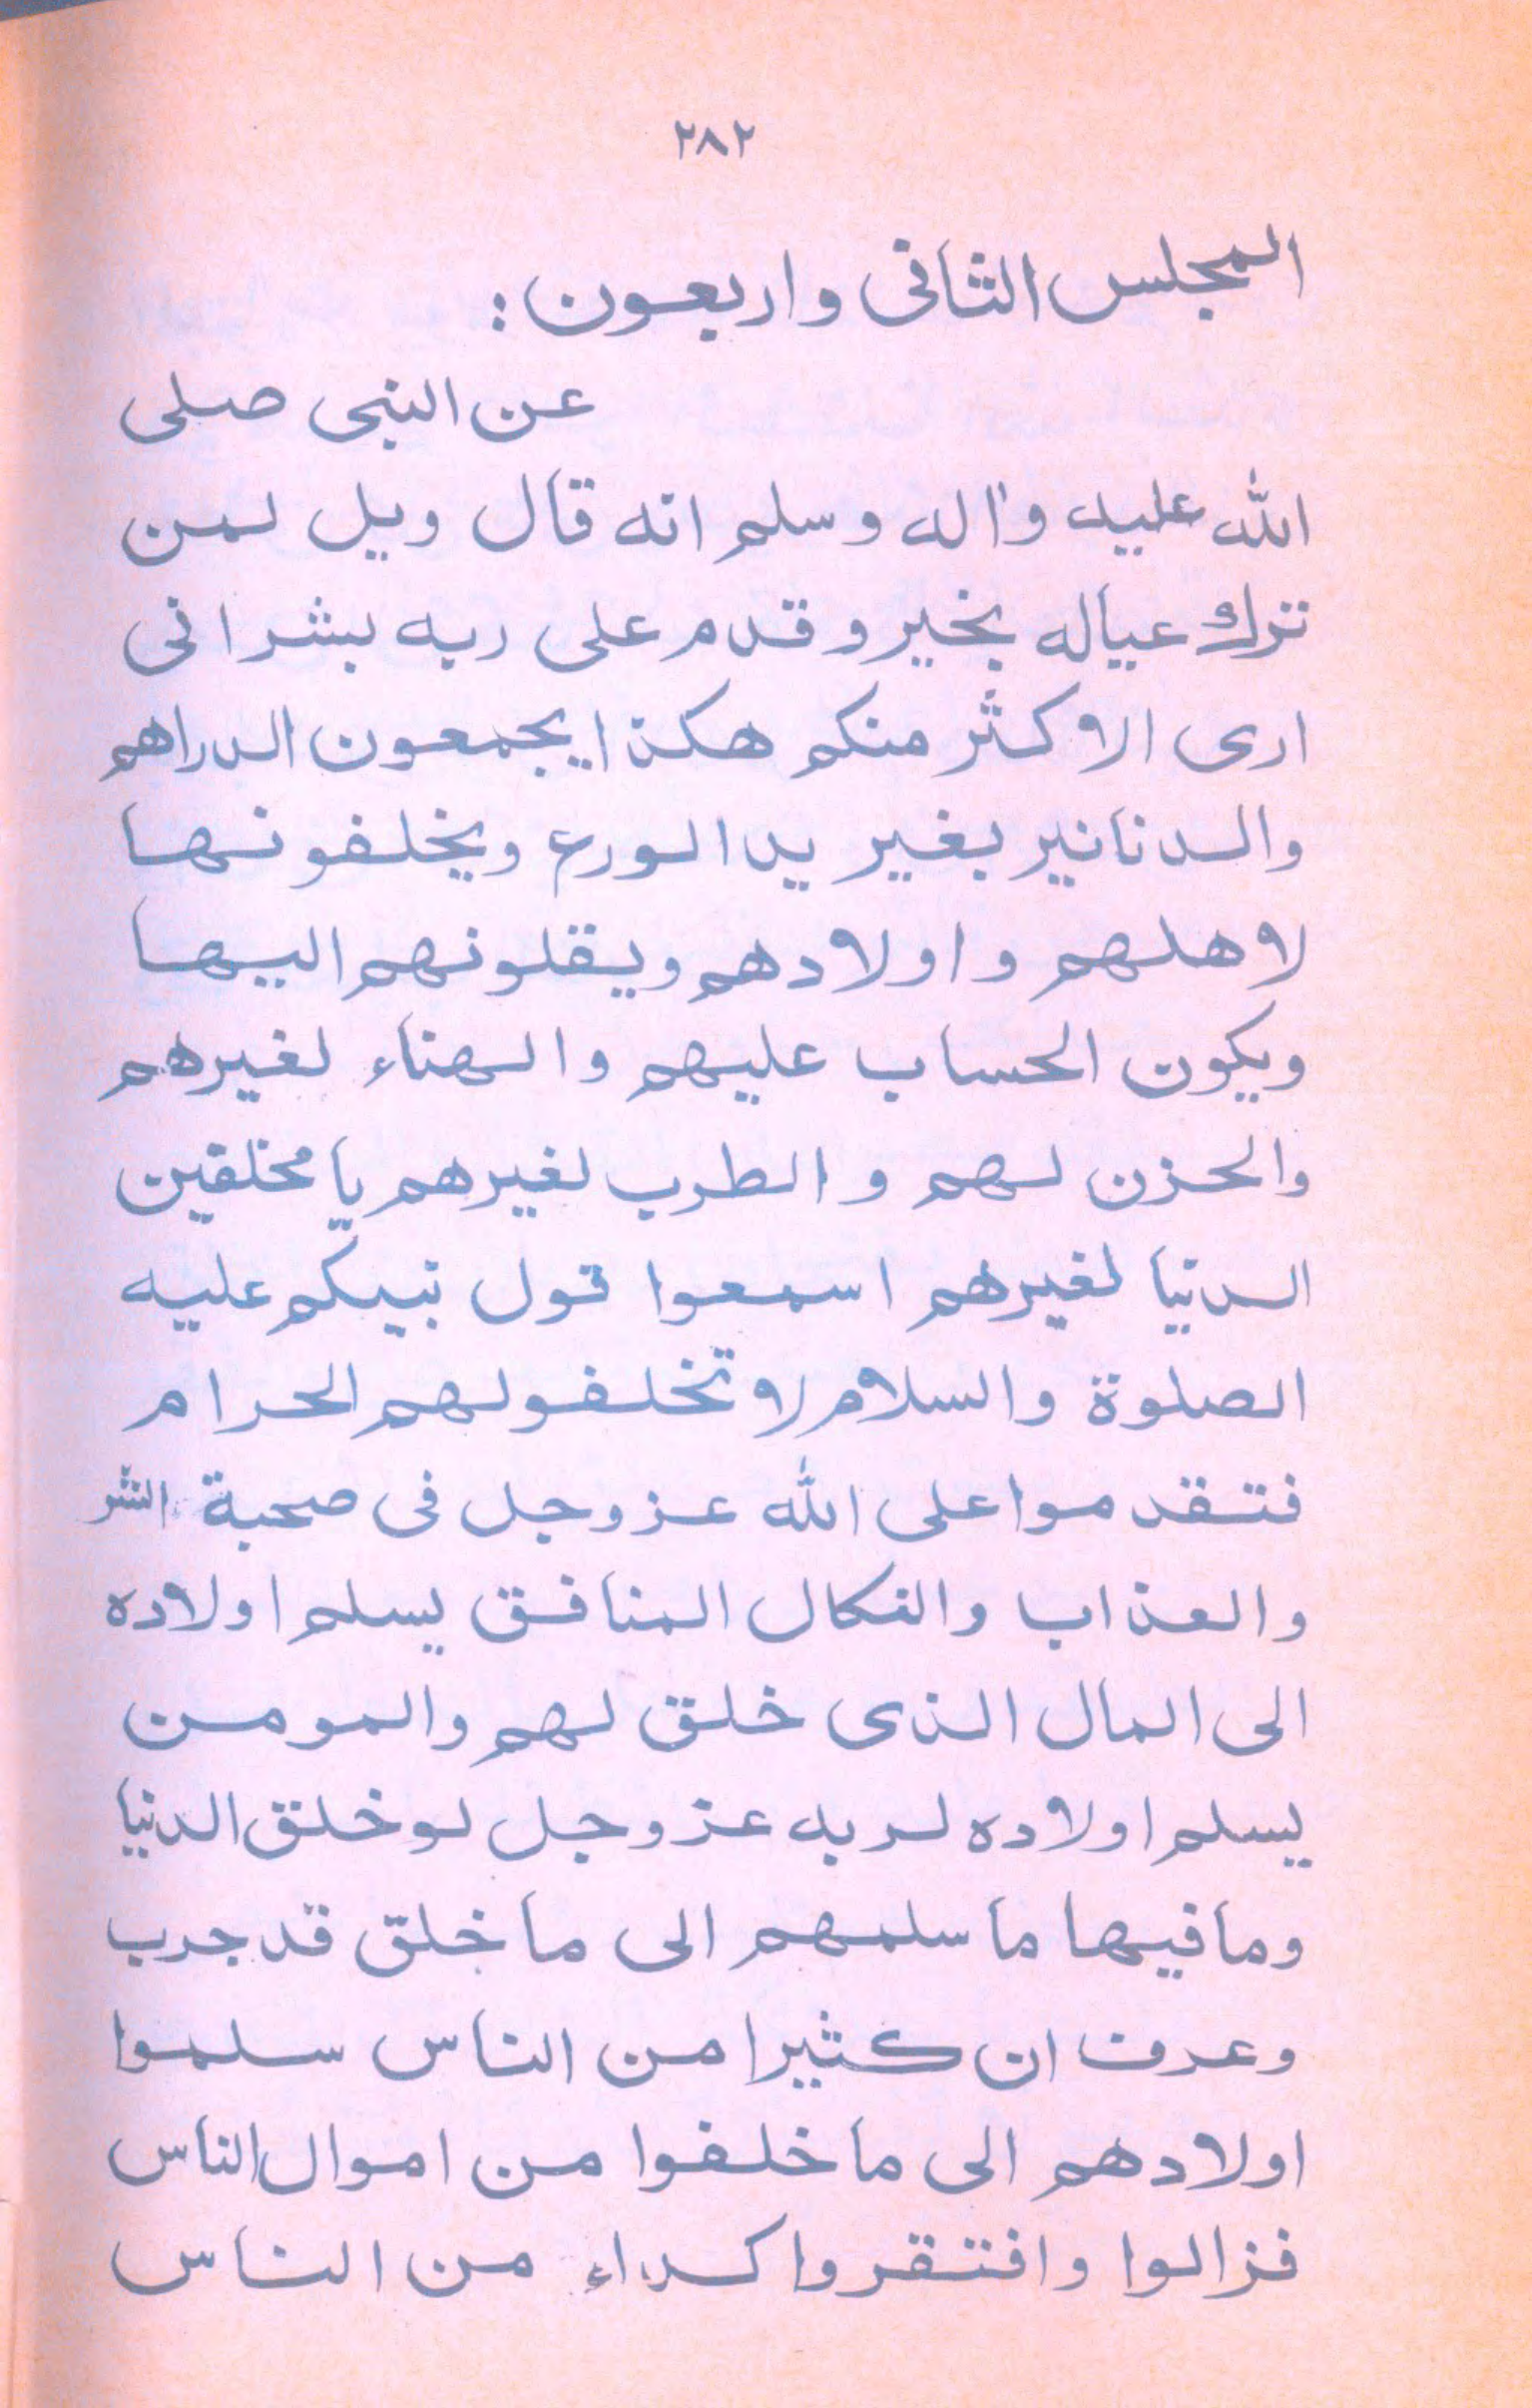 ٢٨٢
المجلس الثانی واربعون:
عن النبی صلی
الله علیه واله وسلم انه قال ویل لمن
ترك عیاله بخیر وقدم علی ربه بشر انی
اری الاکثر منکم هکذا یجمعون الدراهم
والدنانیر بغیر ید الورع ویخلفونها
لاهلهم واولادهم ویقلونهم الیها
ویکون الحساب علیهم والهناء لغیرهم
والحزن لهم والطرب لغیرهم یا مخلقین
الدنیا لغیرهم اسمعوا قول نبیکم علیه
الصلوة والسلام لا تخلفولهم الحرام
فتقدموا علی الله عزوجل فی صحبة الشر
والعذاب والنکال المنافق یسلم اولاده
الی المال الذی خلق لهم والمومن
یسلم اولاده لربه عزوجل لو خلق الدنیا
ومافیها ما سلمهم الی ما خلق قد جرب
وعرف ان کثیرا من الناس سلموا
اولادهم الی ما خلفوا من اموال الناس
فزالوا وافتقروا کداء من الناس